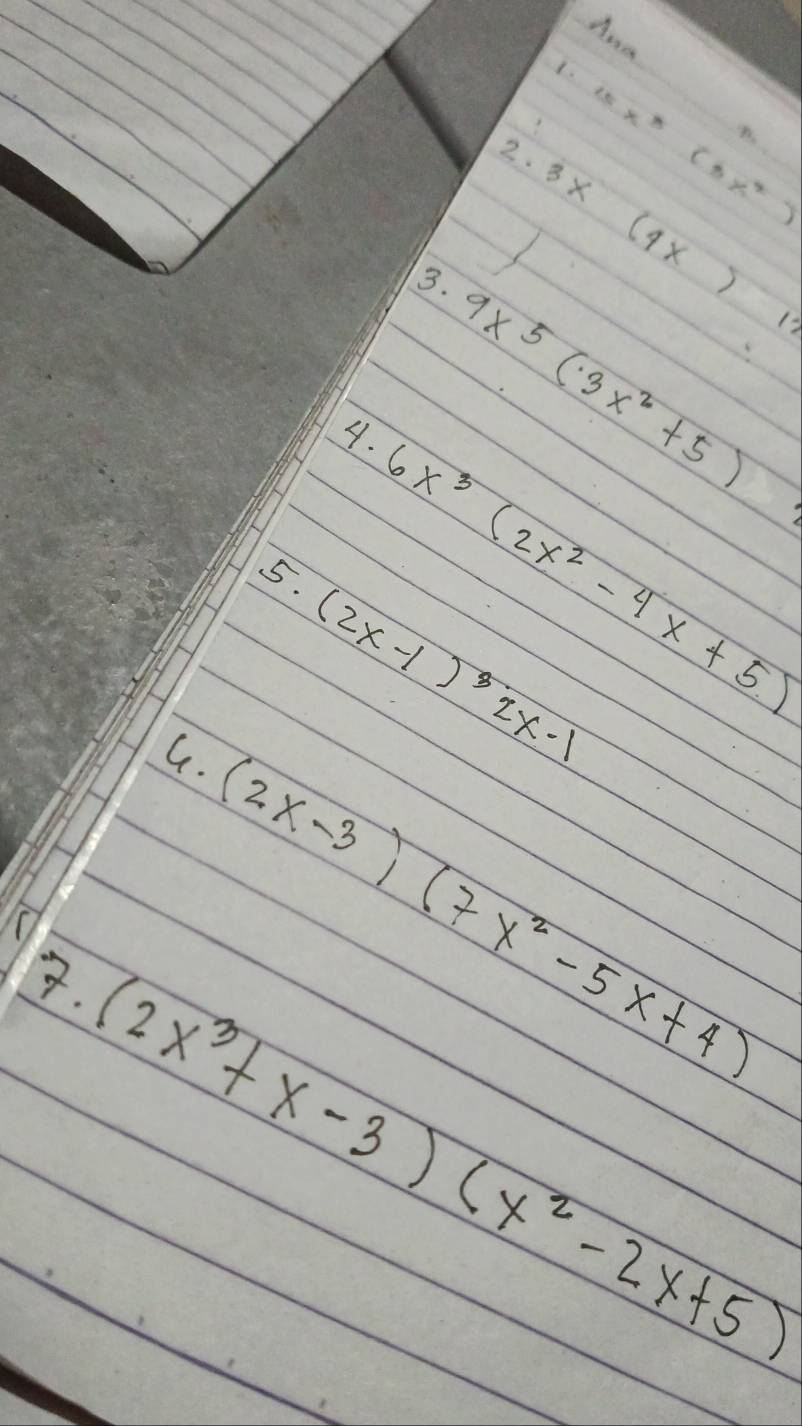 2. 3x (4x )
3. 9x5 (3x² + 5)
4. 6x³ (2x² - 4x + 5)
5. (2x-1)³ 2x-1
6. (2x-3) (7x² - 5x + 4)
7. (2x³ + x - 3) (x² - 2x + 5)